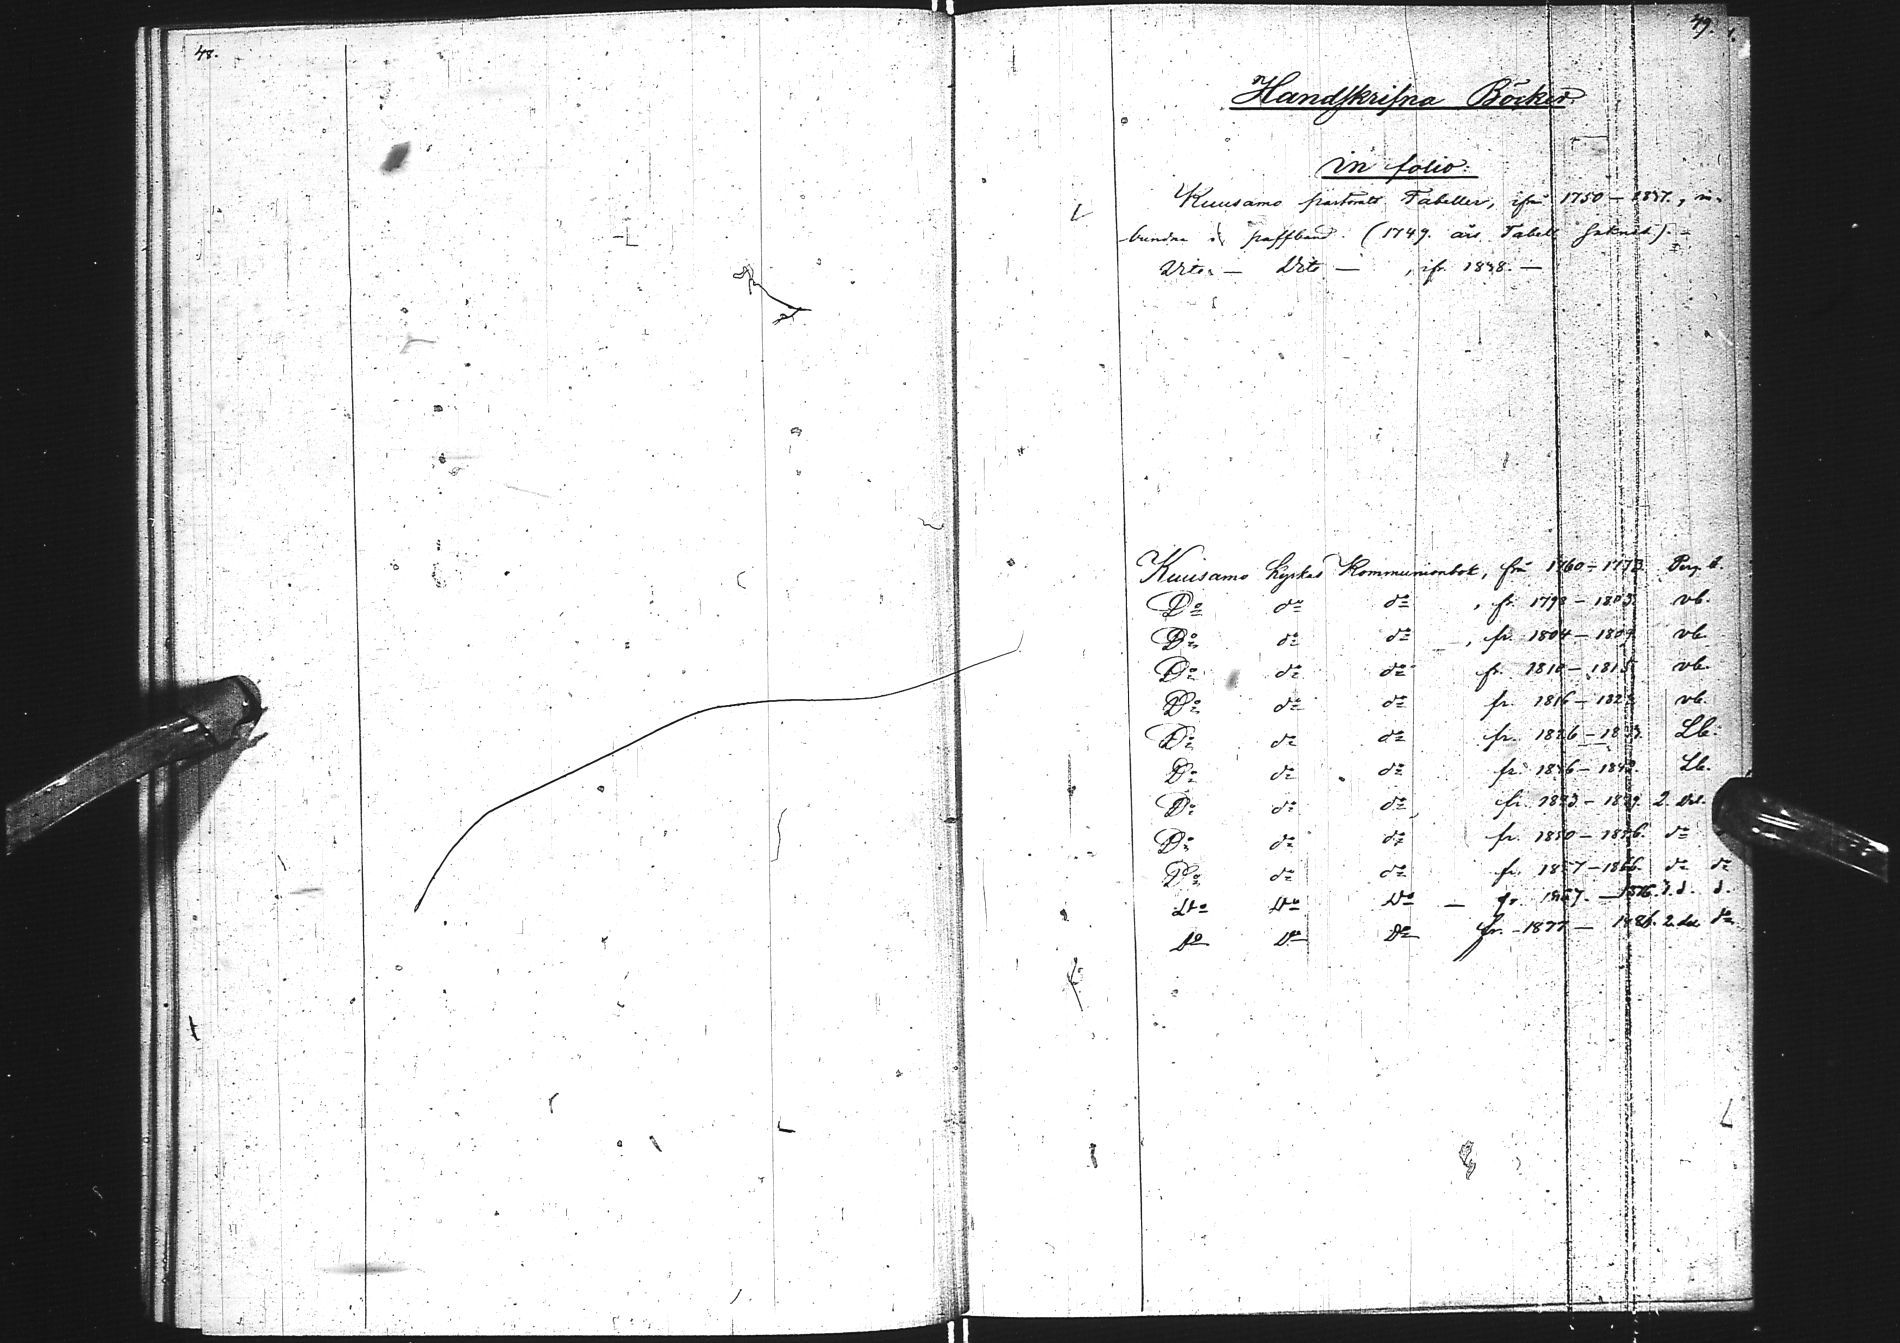 48.
49.
Handskrifna Böcker.
in folio.
Kuusamo pastorats Tabeller, ifrån 1750 – 1837., in-
bundna i paffband. (1749. års Tabell saknas).
Dito – Dito – , ifr. 1838. –
Kuusamo kyrkas Kommunionbok, från 1760 – 1773. Perg. b.
Do do do , fr. 1798 – 1803. vb.
Do do do , fr. 1804 – 1809. vb.
Do do do fr. 1810 – 1815. vb.
Do do do fr. 1816 – vb.
Do do do fr. 1826 – Lb.
Do do do fr. 1836 – 1842. Lb.
Do do do fr. 1843 – 1849. 2 del.
Do do do fr. 1850 – 1856. do
Do do do fr. 1857 – 1866. do do
Do Do Do – fr. 1867. – 1876. d.
Do Do Do fr. 1877 – 1886. 2 del do